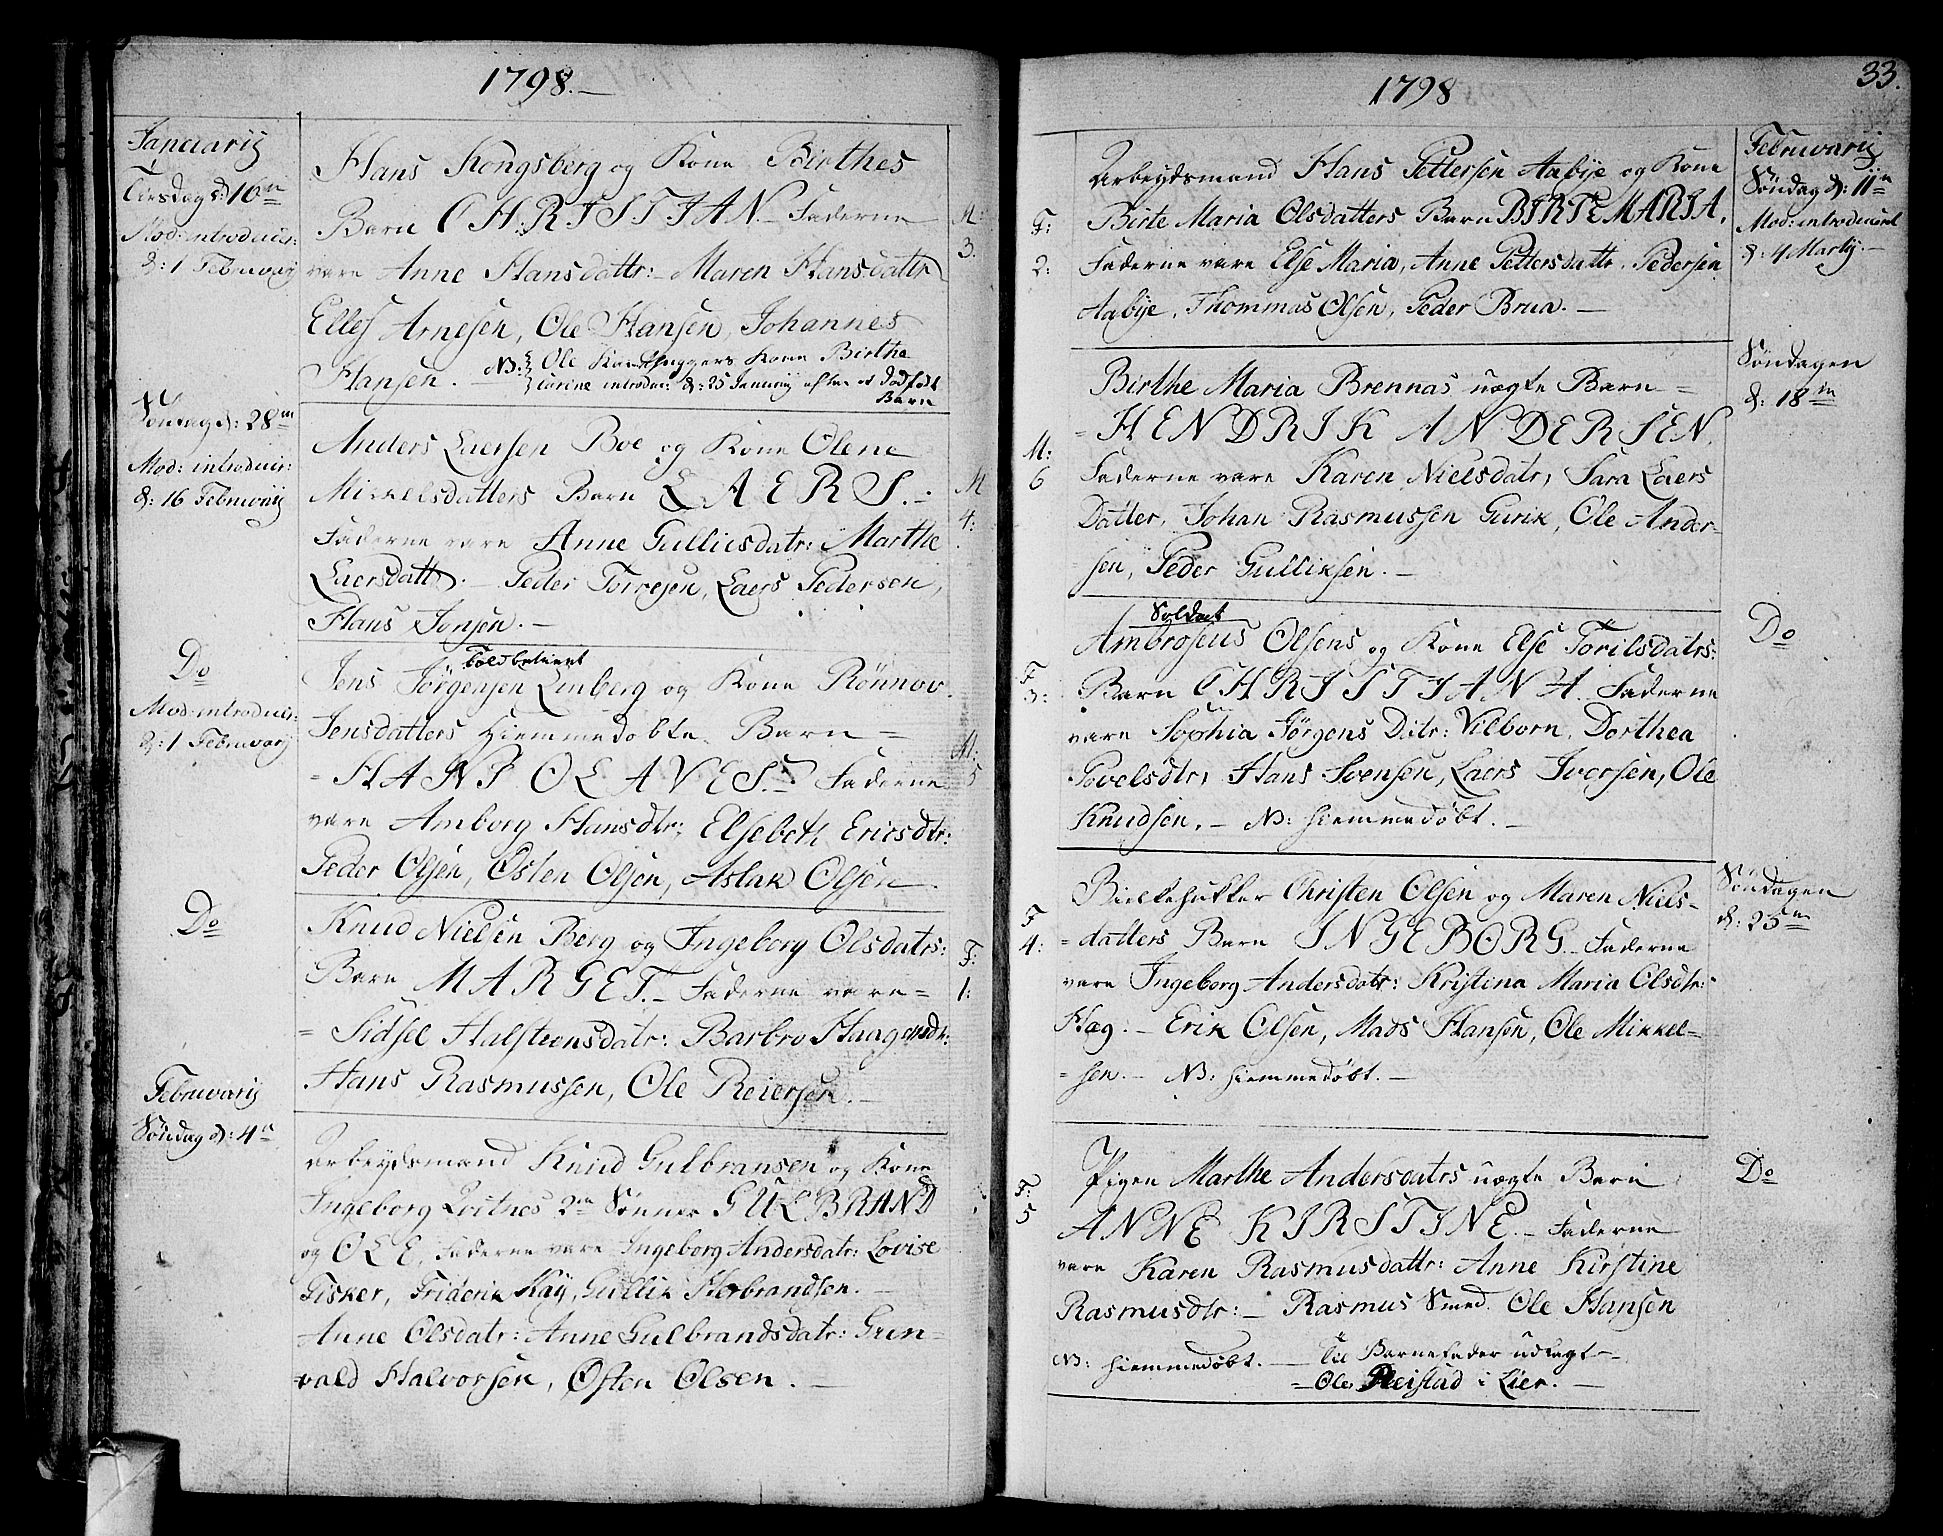 1798.—
Januarij
Tirsdag d: 16de
Mod: introducir:
d: 1 Februarij
Hans Kongsberg og Kone Birthes
Barn CHRISTIAN. Fadderne
vare Anne Hansdattr: Maren Hansdattr
Ellef Arnesen, Ole Hansen, Johannes
Hansen. — NB: Ole Karthuggers Kone Birthe
Carine introduc: d: 25 Januarij efter et dødfødt
Barn
M:
3.
Søndag d: 28de
Mod: introducir:
d: 16 Februarij
Anders Laersen Boe og Kone Olene
Mikkelsdatters Barn LAERS. —
Fadderne vare Anne Gulliesdatr: Marthe
Laersdattr. — Peder Torresen, Laers Pedersen,
Hans Jonsen. —
M
4:
Do
Mod: introducir:
d: 1 Februarij
Toldbetient
Jens Jörgensen Linberg og Kone Rönnov
Jensdatters hiemmedøbte Barn =
= HANS OLAVES. Fadderne
vare Amborg Hansdtr; Elsebeth Ericsdtr:
Peder Olsen, Østen Olsen, Aslak Olsen.
M:
5
Do
Knud Nielsen Berg og Ingeborg Olsdatrs:
Barn MARGET. — Fadderne vare =
= Sidsel Halsteensdatr: Barbro Haagensdtr:
Hans Rasmussen, Ole Reiersen. —
F:
1:
Februarij
Søndag d: 4de
Arbeydsmand Knud Gulbransen og Kone
Ingeborg Qvitnes 2de Sønner GULBRAND
og OLE, Fadderne vare Ingeborg Andersdatr: Lovise
Fisker, Friderik Kay, Gullik Herbrandsen. —
Anne Olsdatr: Anne Gulbrandsdatr: Grun-
vald Halvorsen, Østen Olsen. —
1798
33.
Februarij
Søndag d: 11te
Mod: introduceret
d: 4 Martij. —
F:
2:
Arbeydsmand Hans Pettersen Aabye og Kone
Birte Maria Olsdatters Barn BIRTE MARIA.
Fadderne vare Else Maria, Anne Pettersdattr. Pedersen
Aabye, Thommas Olsen, Peder Brua. —
Søndagen
d: 18de
M:
6
Birthe Maria Brennas uægte Barn =
= HENDRIK ANDERSEN.
Fadderne vare Karen Nielsdatr, Sara Laers
Datter, Johan Rasmussen Gurik, Ole Ander-
= sen, Peder Gulliksen. —
Do
F
3:
Soldat
Ambrosius Olsens og Kone Else Torilsdatrs:
Barn CHRISTIANA. Fadderne
vare Sophia Jørgens Datr: Vilborn, Dorthea
Povelsdtr, Hans Svensen, Laers Iversen, Ole
Knudsen. — NB: hiemmedøbt. —
Søndagen
d: 25de
F
4:
Bielkehukker Christen Olsen og Maren Niels-
= datters Barn INGEBORG. Fadderne
vare Ingeborg Andersdatr: Kristena Maria Olsdtr:
Hæg: — Erik Olsen, Mads Hansen, Ole Mikkel=
= sen. — NB: hiemmedøbt. —
Do
F:
5
Pigen Marthe Andersdatrs uægte Barn
ANNE KIRSTINE. — Fadderne
vare Karen Rasmusdattr: Anne Kirstine
Rasmusdtr: — Rasmus Smed. Ole Hansen
NB: hiemmedøbt. — Til Barnefader udlagt —
= Ole Reistad i Lier. —